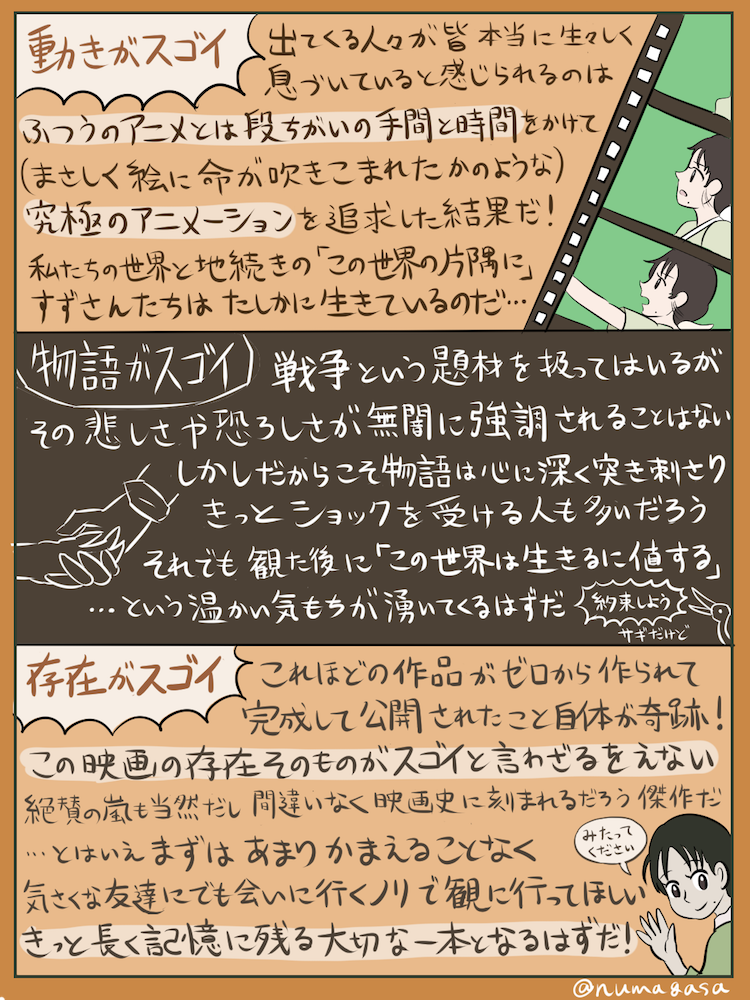 動きがスゴイ
出てくる人々が皆 本当に生々しく
息づいていると感じられるのは
ふつうのアニメとは段ちがいの手間と時間をかけて
(まさしく絵に命が吹きこまれたかのような)
究極のアニメーションを追求した結果だ!
私たちの世界と地続きの「この世界の片隅に」
すずさんたちは たしかに生きているのだ…
物語がスゴイ
戦争という題材を扱ってはいるが
その悲しさや恐ろしさが無闇に強調されることはない
しかしだからこそ物語は心に深く突き刺さり
きっと ショックを受ける人も多いだろう
それでも観た後に「この世界は生きるに値する」
…という温かい気もちが湧いてくるはずだ
約束しよう
サギだけど
存在がスゴイ
これほどの作品がゼロから作られて
完成して公開されたこと自体が奇跡!
この映画の存在そのものがスゴイと言わざるをえない
絶賛の嵐も当然だし 間違いなく映画史に刻まれるだろう傑作だ
…とはいえ まずは あまり かまえることなく
気さくな友達にでも会いに行くノリで観に行ってほしい
きっと長く記憶に残る大切な一本となるはずだ!
みたって
ください
@numagasa